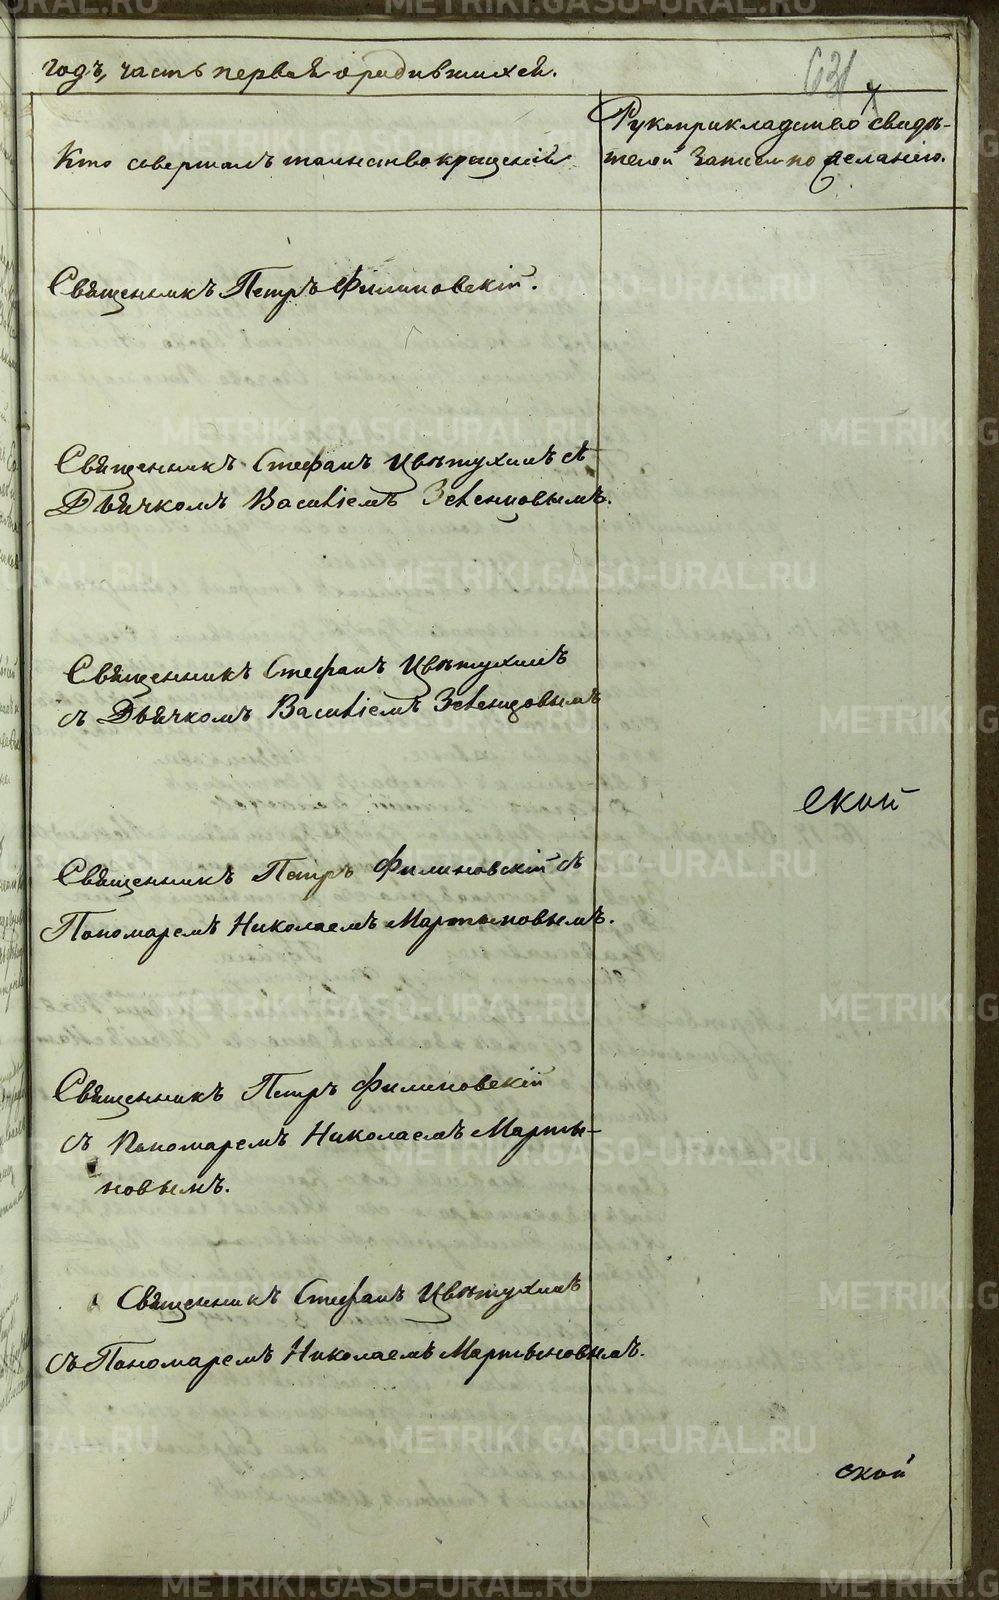 годъ, часть первая о родившихся.
631
Кто совершалъ таинство крещенія
Рукоприкладство свидѣ-
телей записи по желанію.
Священникъ Петръ Филиповскій.
Священникъ Стефанъ Цвѣтухинъ съ
Дьячкомъ Василіемъ Зеленцовымъ.
Священникъ Стефанъ Цвѣтухинъ
съ Дьячкомъ Василіемъ Зеленцовымъ
ской
Священникъ Петръ Филиновскій съ
Пономаремъ Николаемъ Мартыновымъ.
Священникъ Петръ Филиповскій
съ Пономаремъ Николаемъ Марты-
новымъ.
Священникъ Стефанъ Цвѣтухинъ
съ Пономаремъ Николаемъ Мартыновымъ.
ской
METRIKI.GASO-URAL.RU